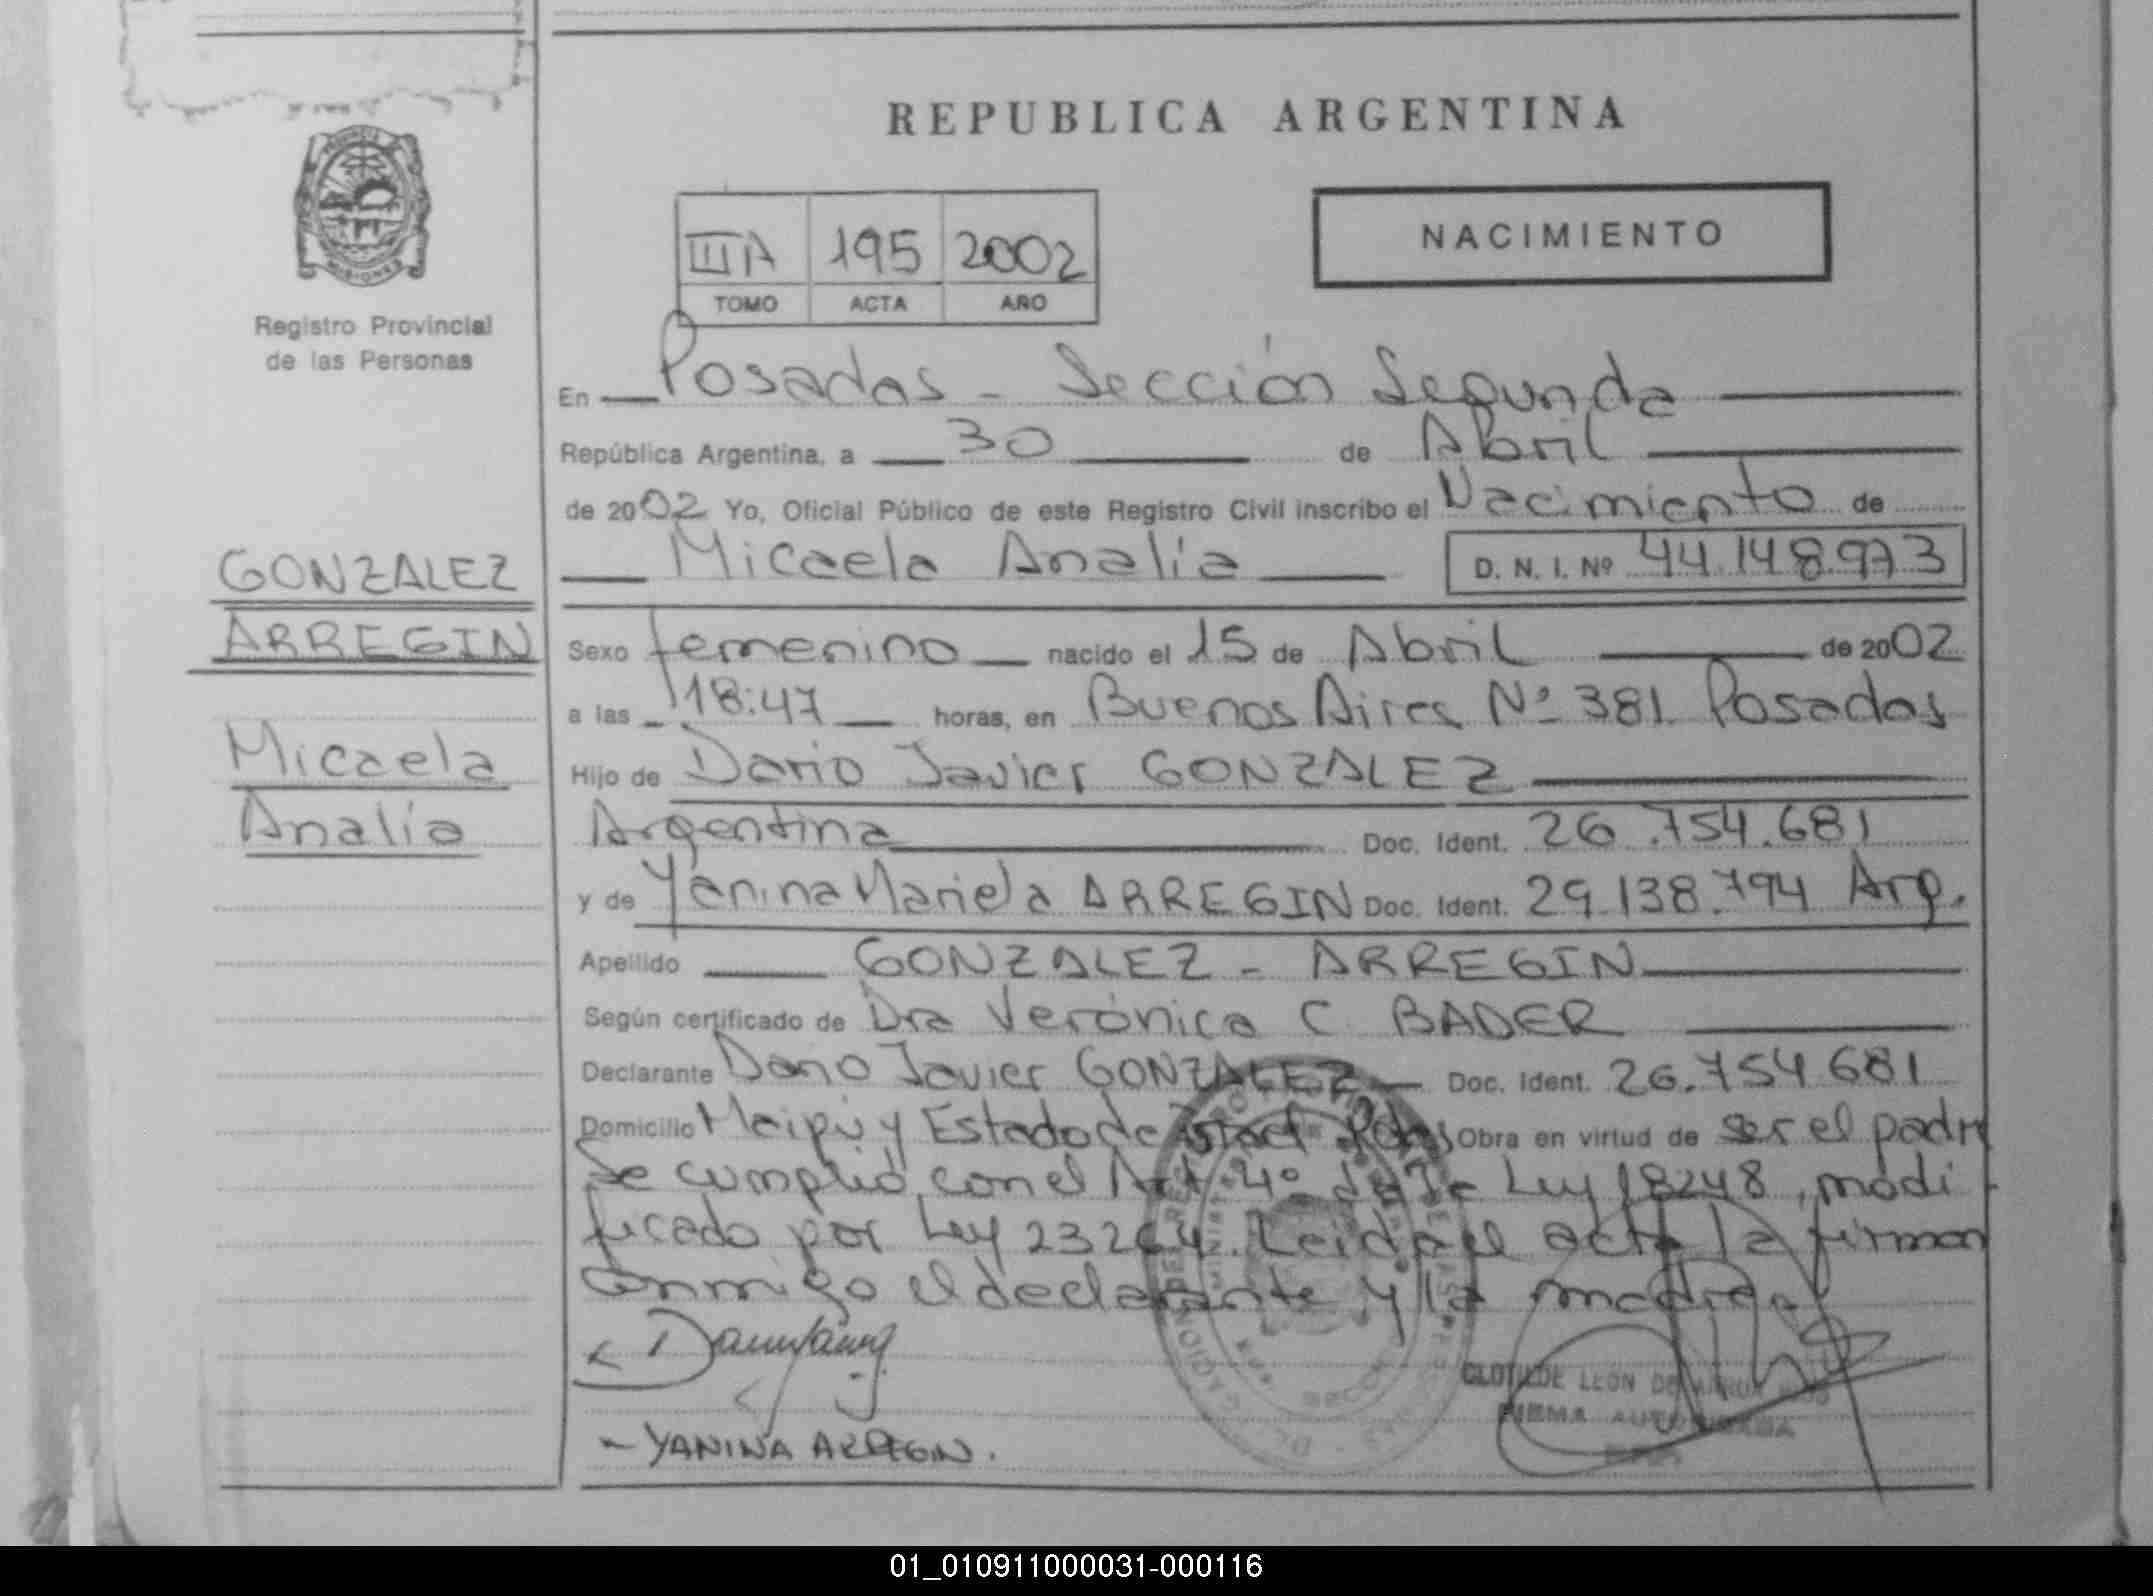 REPUBLICA ARGENTINA
PROVINCIA
MISIONES
Registro Provincial
de las Personas
NACIMIENTO
IIIA 195 2002
TOMO ACTA AÑO
En Posadas - Sección Segunda
República Argentina, a 30 de Abril
de 2002 Yo, Oficial Público de este Registro Civil inscribo el Nacimiento de
Micaela Analía D. N. I. Nº 44.148.973
GONZALEZ
ARREGIN
Micaela
Analía
Sexo femenino nacido el 15 de Abril de 2002
a las 18:47 horas, en Buenos Aires Nº 381 Posadas
Hijo de Dario Javier GONZALEZ
Argentina Doc. Ident. 26.754.681
y de Yanina Mariela ARREGIN Doc. Ident. 29.138.794 Arg.
Apellido GONZALEZ - ARREGIN
Según certificado de Dra Verónica C. BADER
Declarante Dario Javier GONZALEZ Doc. Ident. 26.754.681
Domicilio Maipú y Estado de Israel Pdas Obra en virtud de ser el padre
Se cumplió con el Art 4º de la Ley 18248, modi
ficado por Ley 23264. Leida el acta la firman
conmigo el declarante y la madre
YANINA ARREGIN.
CLOTILDE LEON DE
FIRMA AUTORIZADA
01_010911000031-000116